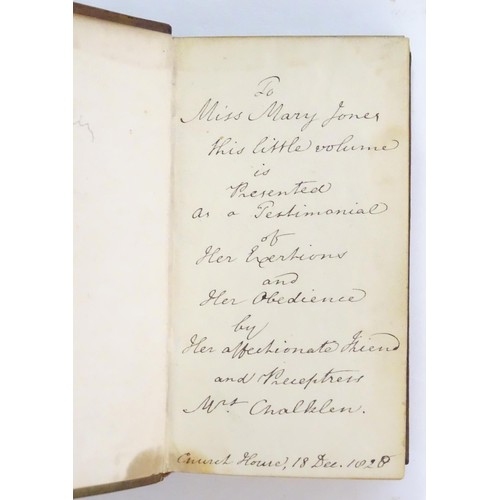 To
Miss Mary Jones
this little volume
is
Presented
as a Testimonial
of
Her Exertions
and
Her Obedience
by
Her affectionate Friend
and Preceptress
Mrs Chalklen.
Church House, 18 Dec. 1828